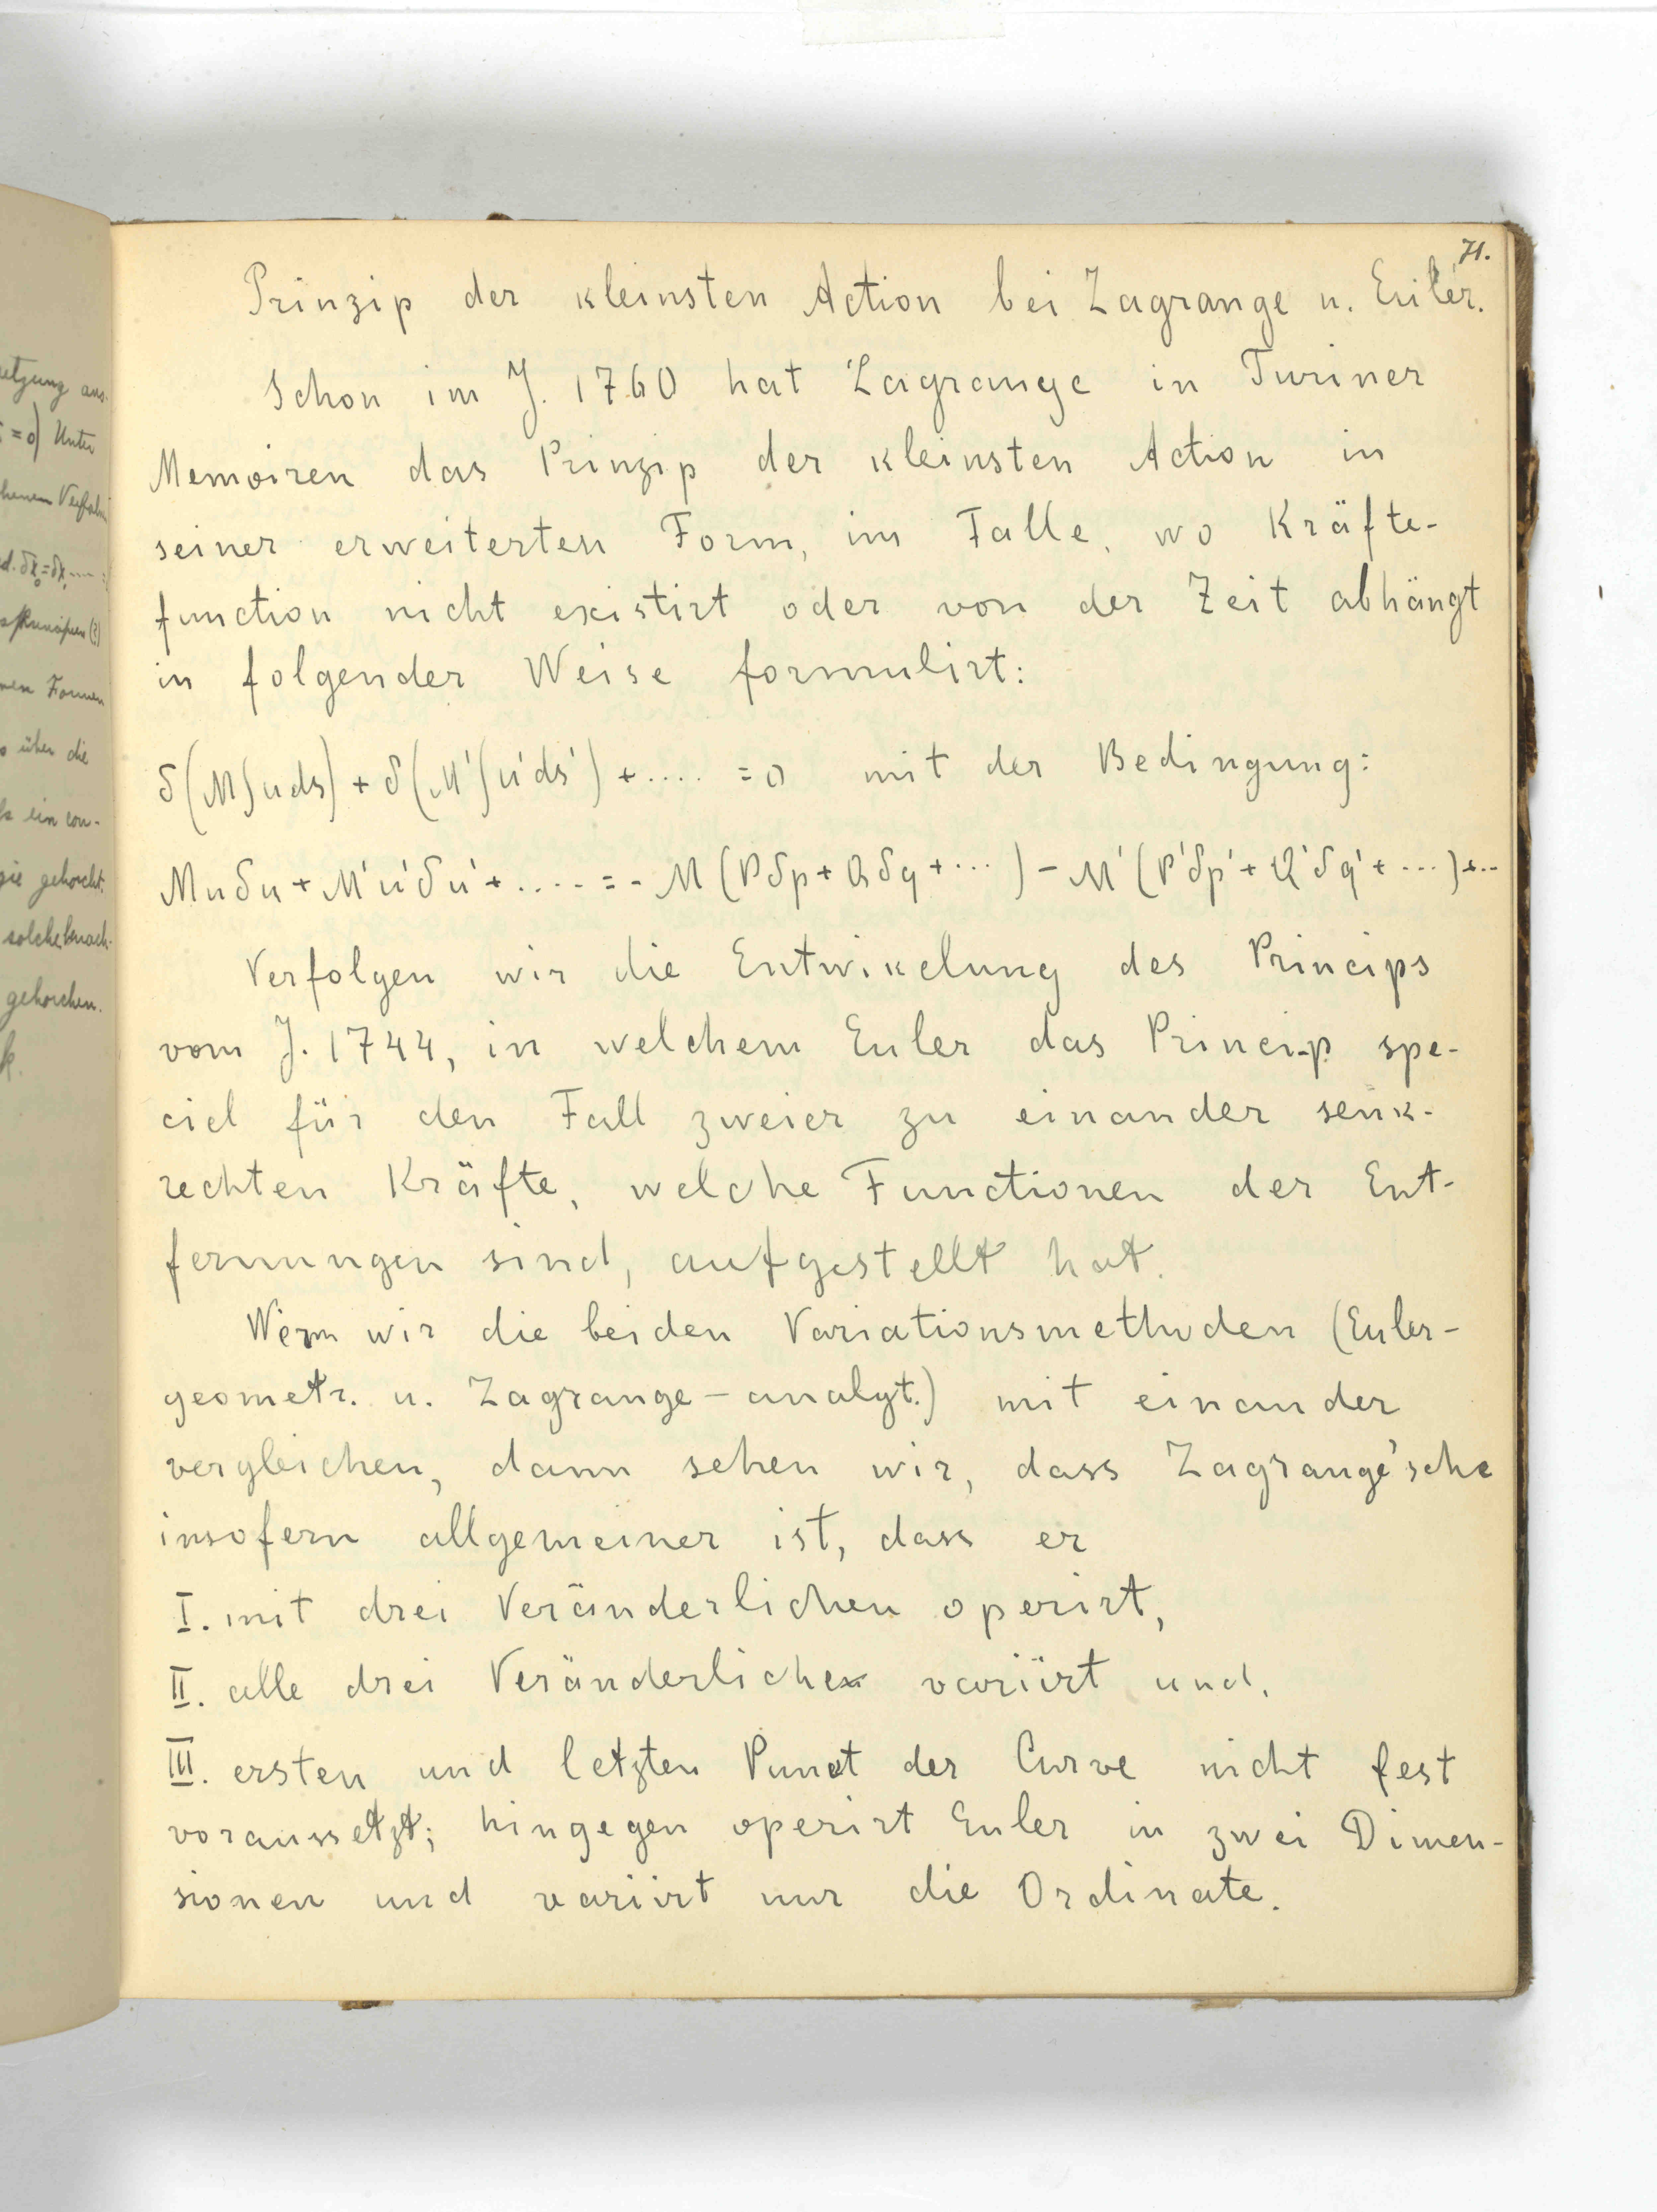 71.
Prinzip der kleinsten Action bei Lagrange u. Euler.
Schon im J. 1760 hat Lagrange in Turiner
Memoiren das Prinzip der kleinsten Action in
seiner erweiterten Form, im Falle, wo Kräfte-
function nicht existirt oder von der Zeit abhängt
in folgender Weise formulirt:
δ(M∫uds) + δ(M'∫u'ds') + .... = 0 mit der Bedingung:
Muδu + M'u'δu' + .... = - M(Pδp + Qδq + ...) - M'(P'δp' + Q'δq' + ...) + ..
Verfolgen wir die Entwikelung des Princips
vom J. 1744, in welchem Euler das Princip spe-
ciel für den Fall zweier zu einander senk-
rechten Kräfte, welche Functionen der Ent-
fernungen sind, aufgestellt hat.
Wenn wir die beiden Variationsmethoden (Euler-
geometr. u. Lagrange-analyt.) mit einander
vergleichen, dann sehen wir, dass Lagrange'sche
insofern allgemeiner ist, dass er
I. mit drei Veränderlichen operirt,
II. alle drei Veränderliche variirt und.
III. ersten und letzten Punct der Curve nicht fest
voraussetzt; hingegen operirt Euler in zwei Dimen-
sionen und variirt nur die Ordinate.
setzung aus.
= 0) Unter
über die
ein con-
gehorcht.
solche
gehorchen.